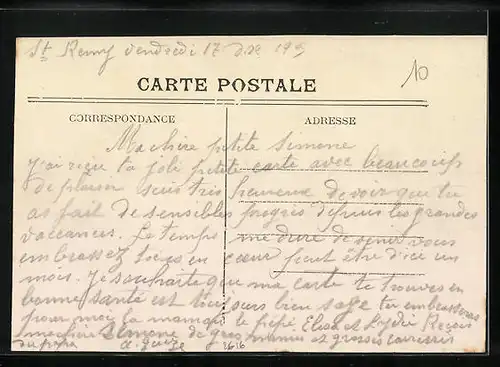 St Remy vendredi 17 Xbre 19
10
CARTE POSTALE
CORRESPONDANCE
ADRESSE
Ma chère petite Simone
J'ai reçu ta joli petite carte avec beaucoup
de plaisir suis très heureuse de voir que tu
as fait de sensibles progres depuis les grandes
vaccances. Le temps me dure de venir vous
embrassez tous en cœur peut être d'ici un
mois. Je souhaite que ma carte te trouve en
bonne santé est toujours bien sage tu embrassera
pour moi la maman le pépé, Elisa et Lydie Reçois
ma chère Simone de gros mimis et grosses caresses